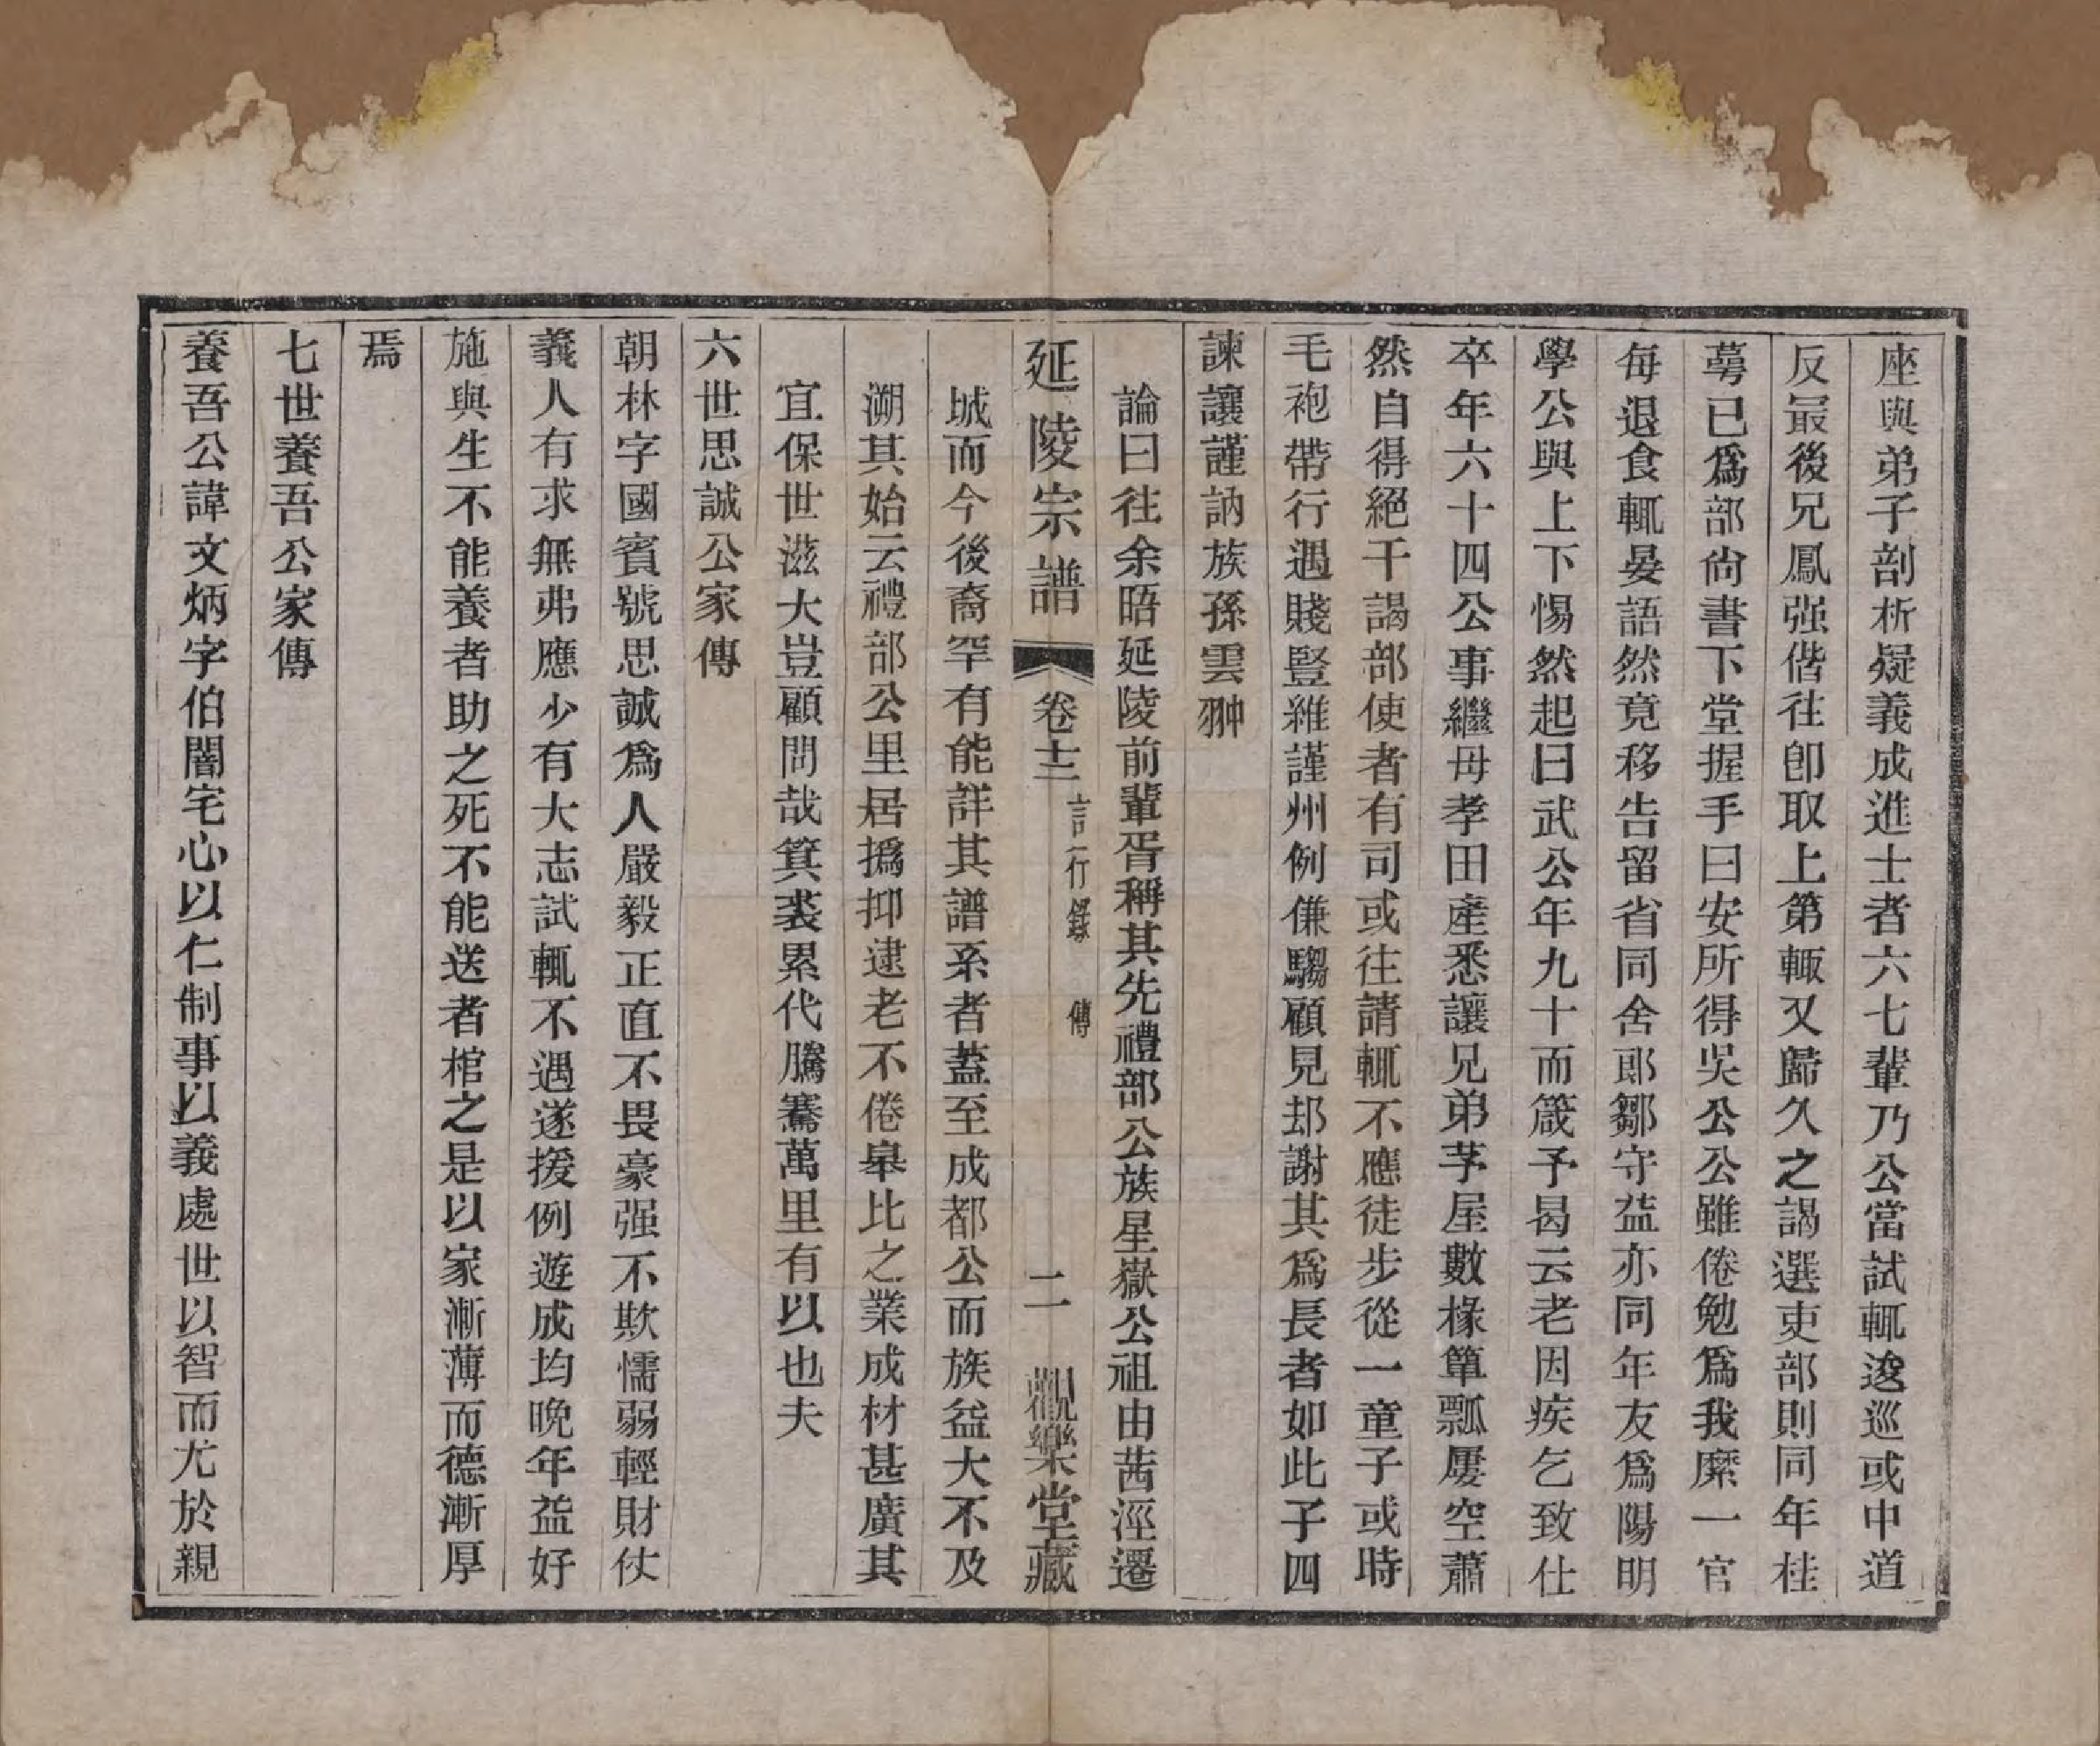 座與弟子剖析疑義成進士者六七輩乃公當試輒逡巡或中道
反最後兄鳳强偕往卽取上第輒又歸久之謁選吏部則同年桂
萼已爲部尙書下堂握手曰安所得吳公公雖倦勉爲我縻一官
每退食輒晏語然竟移告留省同舍郎鄒守益亦同年友爲陽明
學公與上下惕然起曰武公年九十而箴予曷云老因疾乞致仕
卒年六十四公事繼母孝田產悉讓兄弟茅屋數椽簞瓢屢空蕭
然自得絕干謁部使者有司或往請輒不應徒步從一童子或時
毛袍帶行遇賤豎維謹州例傔騶顧見却謝其爲長者如此子四
諫讓謹訥族孫雲翀
論曰往余晤延陵前輩胥稱其先禮部公族星嶽公祖由茜涇遷
延陵宗譜
卷十三
言行錄　傳
二
觀樂堂藏
城而今後裔罕有能詳其譜系者蓋至成都公而族益大不及
溯其始云禮部公里居撝抑逮老不倦皋比之業成材甚廣其
宜保世滋大豈顧問哉箕裘累代騰騫萬里有以也夫
六世思誠公家傳
朝林字國賓號思誠爲人嚴毅正直不畏豪强不欺懦弱輕財仗
義人有求無弗應少有大志試輒不遇遂援例遊成均晚年益好
施與生不能養者助之死不能送者棺之是以家漸薄而德漸厚
焉
七世養吾公家傳
養吾公諱文炳字伯闇宅心以仁制事以義處世以智而尤於親